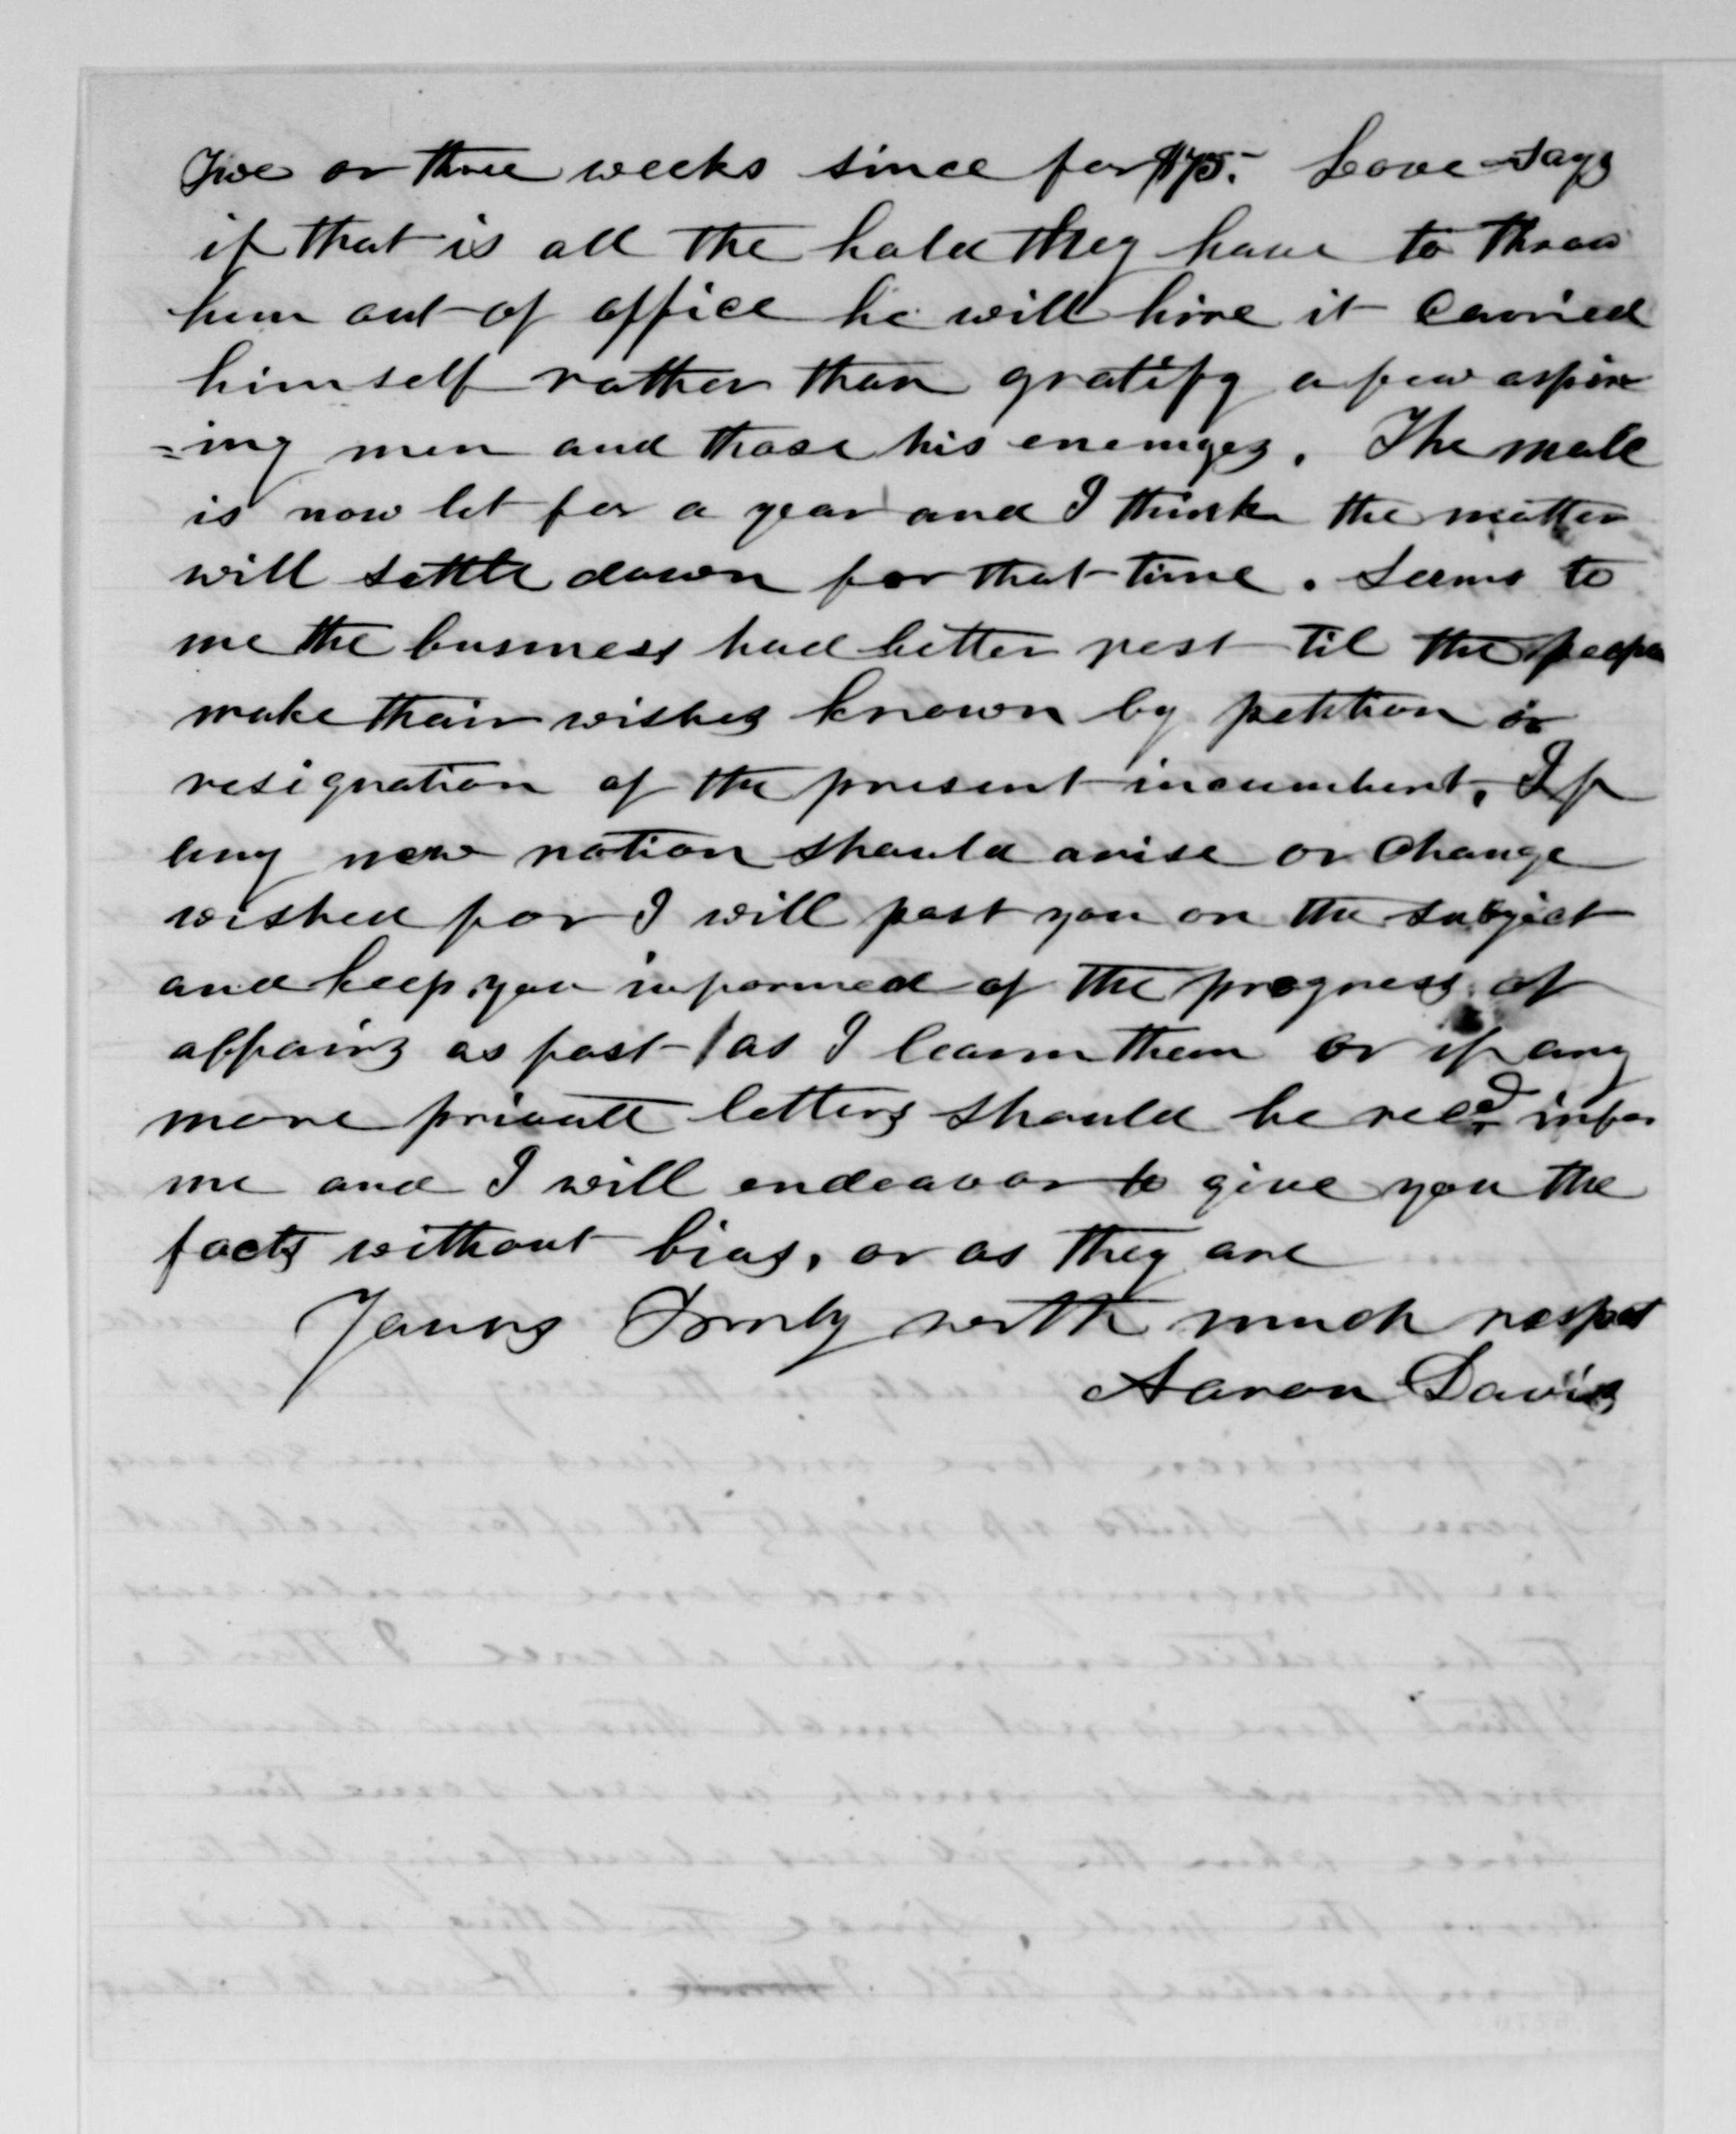 Two or three weeks since for $75.- Love says
if that is all the hold they have to throw
him out of office he will hire it carried
himself rather than gratify a few aspir
=ing men and those his enemyes. The male
is now let for a year and I think the matter
will settle down for that time. Seems to
me the business had better rest til the peopl
make thair wishes known by petition or
resignation of the present incumbent. If
any new notion should arise or change
wished for I will post you on the subject
and keep you informed of the progress of
affairs as fast as I learn them or if any
more private letters should be recd infor
me and I will endeavor to give you the
facts without bias, or as they are
Yours Truly with much respect
Aaron Davis